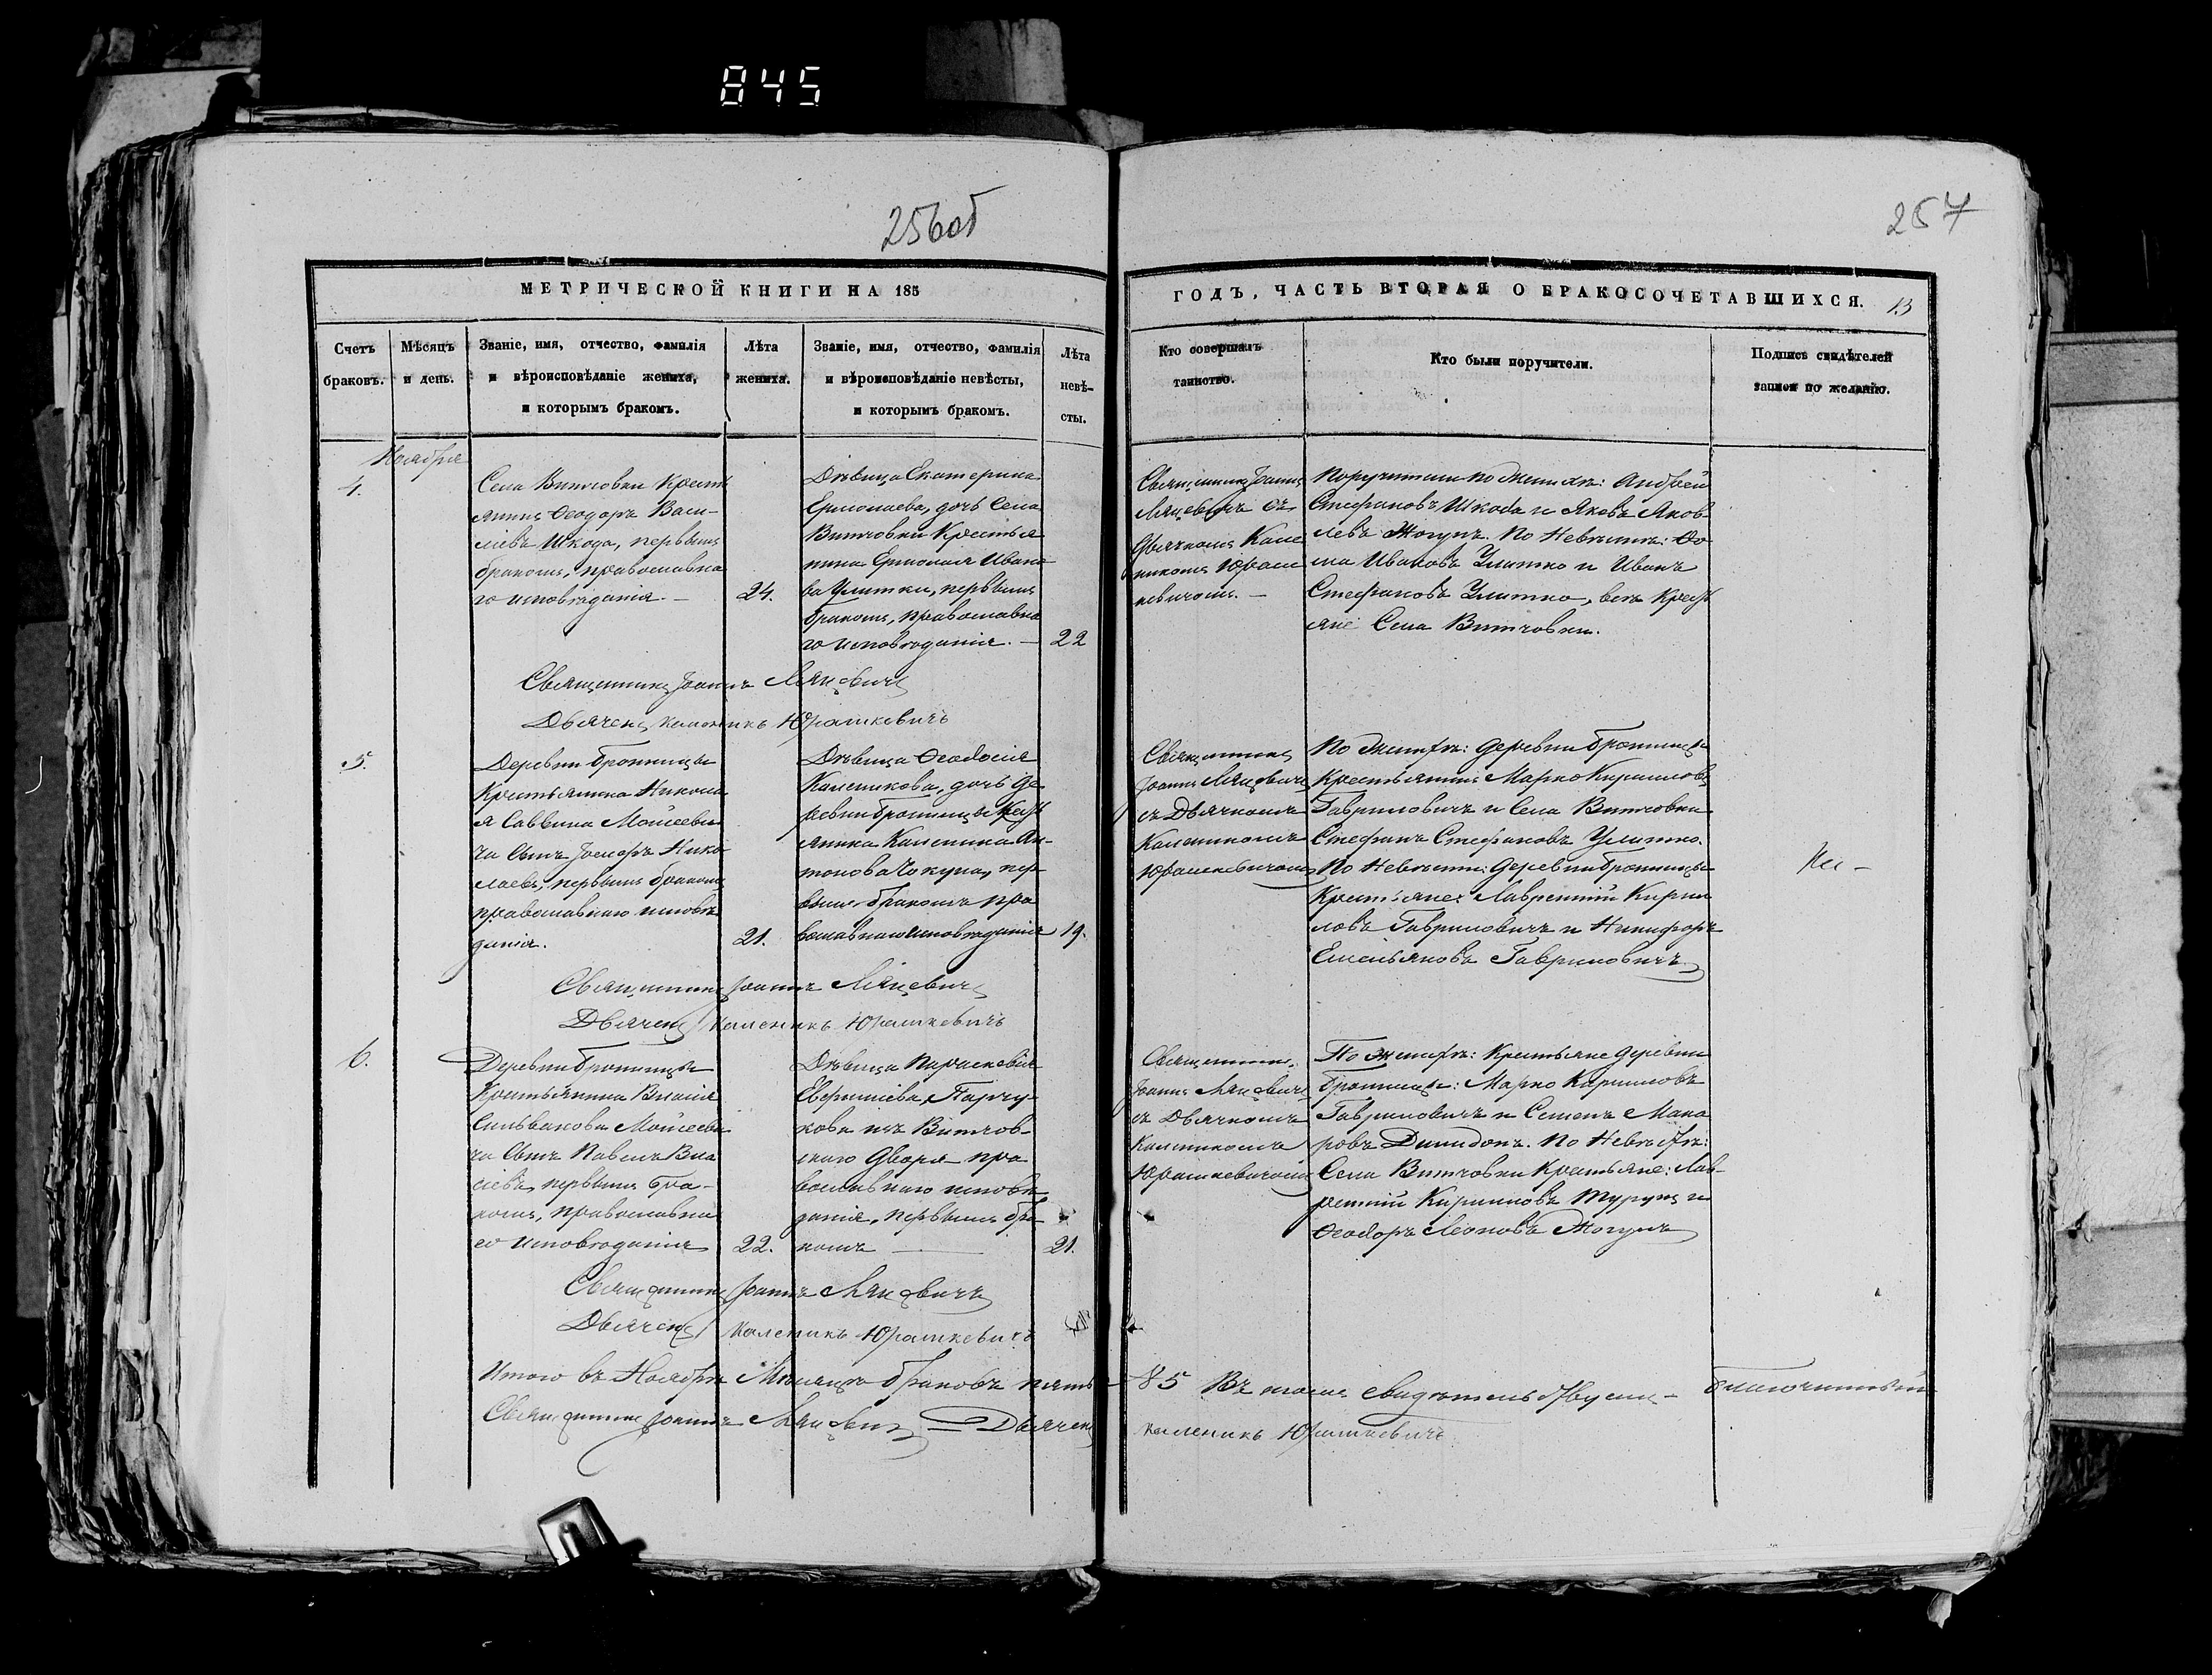 845
256об
257
МЕТРИЧЕСКОЙ КНИГИ НА 185
ГОДЪ, ЧАСТЬ ВТОРАЯ О БРАКОСОЧЕТАВШИХСЯ. 13
Счетъ
браковъ.
Мѣсяцъ
и день.
Званіе, имя, отчество, фамилія
и вѣроисповѣданіе жениха,
и которымъ бракомъ.
Лѣта
жениха.
Званіе, имя, отчество, фамилія
и вѣроисповѣданіе невѣсты,
и которымъ бракомъ.
Лѣта
невѣ-
сты.
Кто совершалъ
таинство.
Кто были поручители.
Подпись свидѣтелей
записи по желанію.
Ноября
4.
Села Витчовки Кресть
янинъ Ѳеодоръ Васи-
лiевъ Шкода, первымъ
бракомъ, православна
го исповѣданія. —
24.
Дѣвица Екатерина
Ермолаева, дочь Села
Витчовки Крестья
нина Ермолая Ивано
ва Улитки, первымъ
бракомъ, православна
го исповѣданія. —
22
Священникъ Іоаннъ
Съ
Дьячкомъ Кале
никомъ Юраш
кевичомъ. —
Поручители по Женихѣ: Андрей
Стефановъ Шкода и Яковъ Яков
левъ Жогунъ. По Невѣстѣ: Ѳо
ма Ивановъ Улитко и Иванъ
Стефановъ Улитко, всѣ Кресть
яне Села Витчовки.
Священникъ Іоаннъ
Дьячекъ Каленикъ Юрашкевичъ
5.
Деревни
Крестьянина Никола
я Саввина Мойсееви
ча Сынъ Іосифъ Нико
лаевъ, первымъ бракомъ
православнаго исповѣ
данія.
21.
Дѣвица Ѳеодосія
Каленикова, дочь Де
ревни Крест
янина Каленика Ан-
тонова пер
вымъ бракомъ пра
вославнаго исповѣданія
19.
Священникъ
Іоаннъ
съ Дьячкомъ
Каленикомъ
Юрашкевичомъ
По Женихѣ: Деревни
Крестьянинъ Марко Кириловъ
Гавриловичъ и Села Витчовки
Стефанъ Стефановъ Улитко.
По Невѣстѣ: Деревни
Крестьяне: Лаврентій Кирил
ловъ Гавриловичъ и Никифоръ
Емельяновъ Гавриловичъ
Священникъ Іоаннъ
Дьячекъ Каленикъ Юрашкевичъ
6.
Деревни
Крестьянина Власія
Сильванова Мойсееви
ча Сынъ Павелъ Вла
сіевъ, первымъ бра-
комъ, православна
го исповѣданія
22.
Дѣвица Параскевія
изъ Витчов-
скаго Двора пра
вославнаго исповѣ
данія, первымъ бра
комъ —
21.
Священникъ
Іоаннъ
съ Дьячкомъ
Каленикомъ
Юрашкевичомъ
По Женихѣ: Крестьяне Деревни
Марко Кириловъ
Гавриловичъ и Семенъ Мака
ровъ По Невѣстѣ:
Села Витчовки Крестьяне: Лав-
рентій Кириловъ и
Ѳеодоръ Леоновъ Жогунъ
Священникъ Іоаннъ
Дьячекъ Каленикъ Юрашкевичъ
Итого въ Ноябрѣ Мѣсяцѣ браковъ пять
5 Въ томъ свидѣтельствуемъ
Священникъ Іоаннъ Дьячекъ
Каленикъ Юрашкевичъ